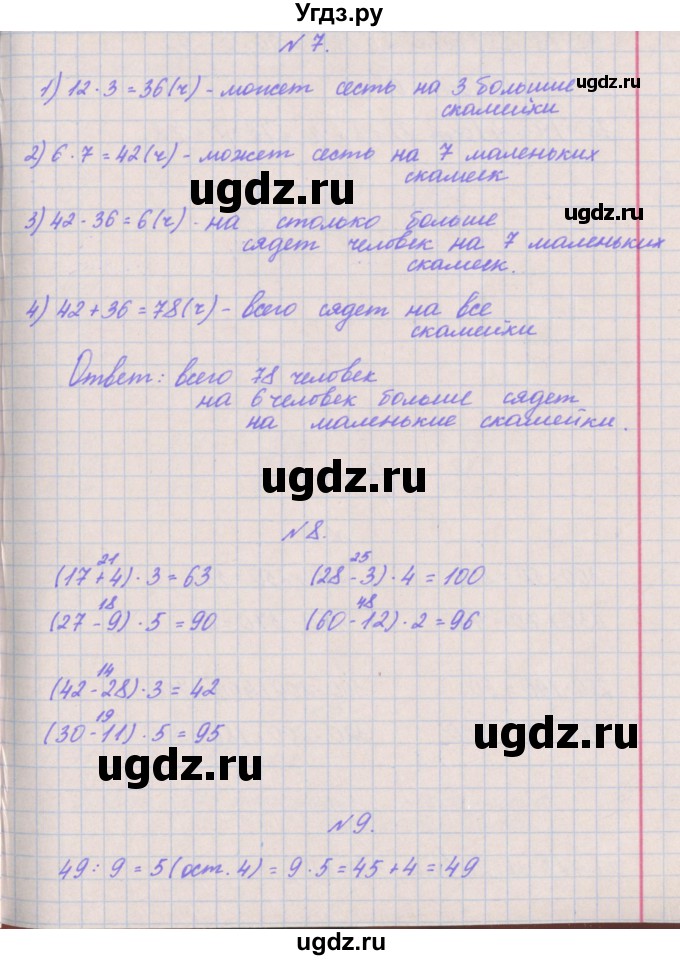 Угдз.ру
№ 7.
ugdz.ru
1) 12 · 3 = 36 (ч) - может сесть на 3 большие
скамейки
2) 6 · 7 = 42 (ч) - может сесть на 7 маленьких
скамеек
ugdz.ru
ugdz.ru
3) 42 - 36 = 6 (ч) - на столько больше
сядет человек на 7 маленьких
скамеек.
4) 42 + 36 = 78 (ч) - всего сядет на все
скамейки
Ответ: всего 78 человек
на 6 человек больше сядет
на маленькие скамейки.
ugdz.ru
ugdz.ru
№ 8.
21 25
(17 + 4) · 3 = 63 (28 - 3) · 4 = 100
18 48
(27 - 9) · 5 = 90 (60 - 12) · 2 = 96
ugdz.ru
14
(42 - 28) · 3 = 42
19
(30 - 11) · 5 = 95
ugdz.ru
ugdz.ru
№ 9.
49 : 9 = 5 (ост. 4) = 9 · 5 = 45 + 4 = 49
ugdz.ru